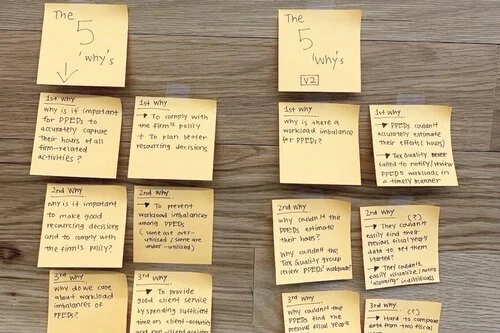 The
5
'Why's
1st Why
Why is it important
for PPEDs to
accurately capture
their hours of all
firm-related
activities?
1st Why
→ To comply with
the firm's policy
+ To plan better
resourcing decisions
2nd Why
Why is it important
to make good
resourcing decisions
and to comply with
the firm's policy?
2nd Why
→ To prevent
workload imbalances
among PPEDs
(some are over-
utilized / some are
under-utilized)
3rd Why
Why do we care
about workload
imbalances of
PPEDs?
3rd Why
→ To provide
good client service
by spending sufficient
time on client-activities
The
5
'Why's
V2
1st Why
Why is there a
workload imbalance
for PPEDs?
1st Why
→ PPEDs couldn't
accurately estimate
their efforts (hours)
→ Tax Quality
failed to notify/review
PPEDs workloads in
a timely manner
2nd Why
Why couldn't the
PPEDs estimate
their hours?
Why couldn't the
Tax Quality group
review PPEDs workloads?
2nd Why (?)
→ They couldn't
easily find their
previous fiscal year's
data to get them
started?
→ They couldn't
easily visualize/notice
individuals
3rd Why
Why couldn't the
PPEDs find the
previous fiscal year's
3rd Why (?)
→ Hard to compare
data from two fiscal